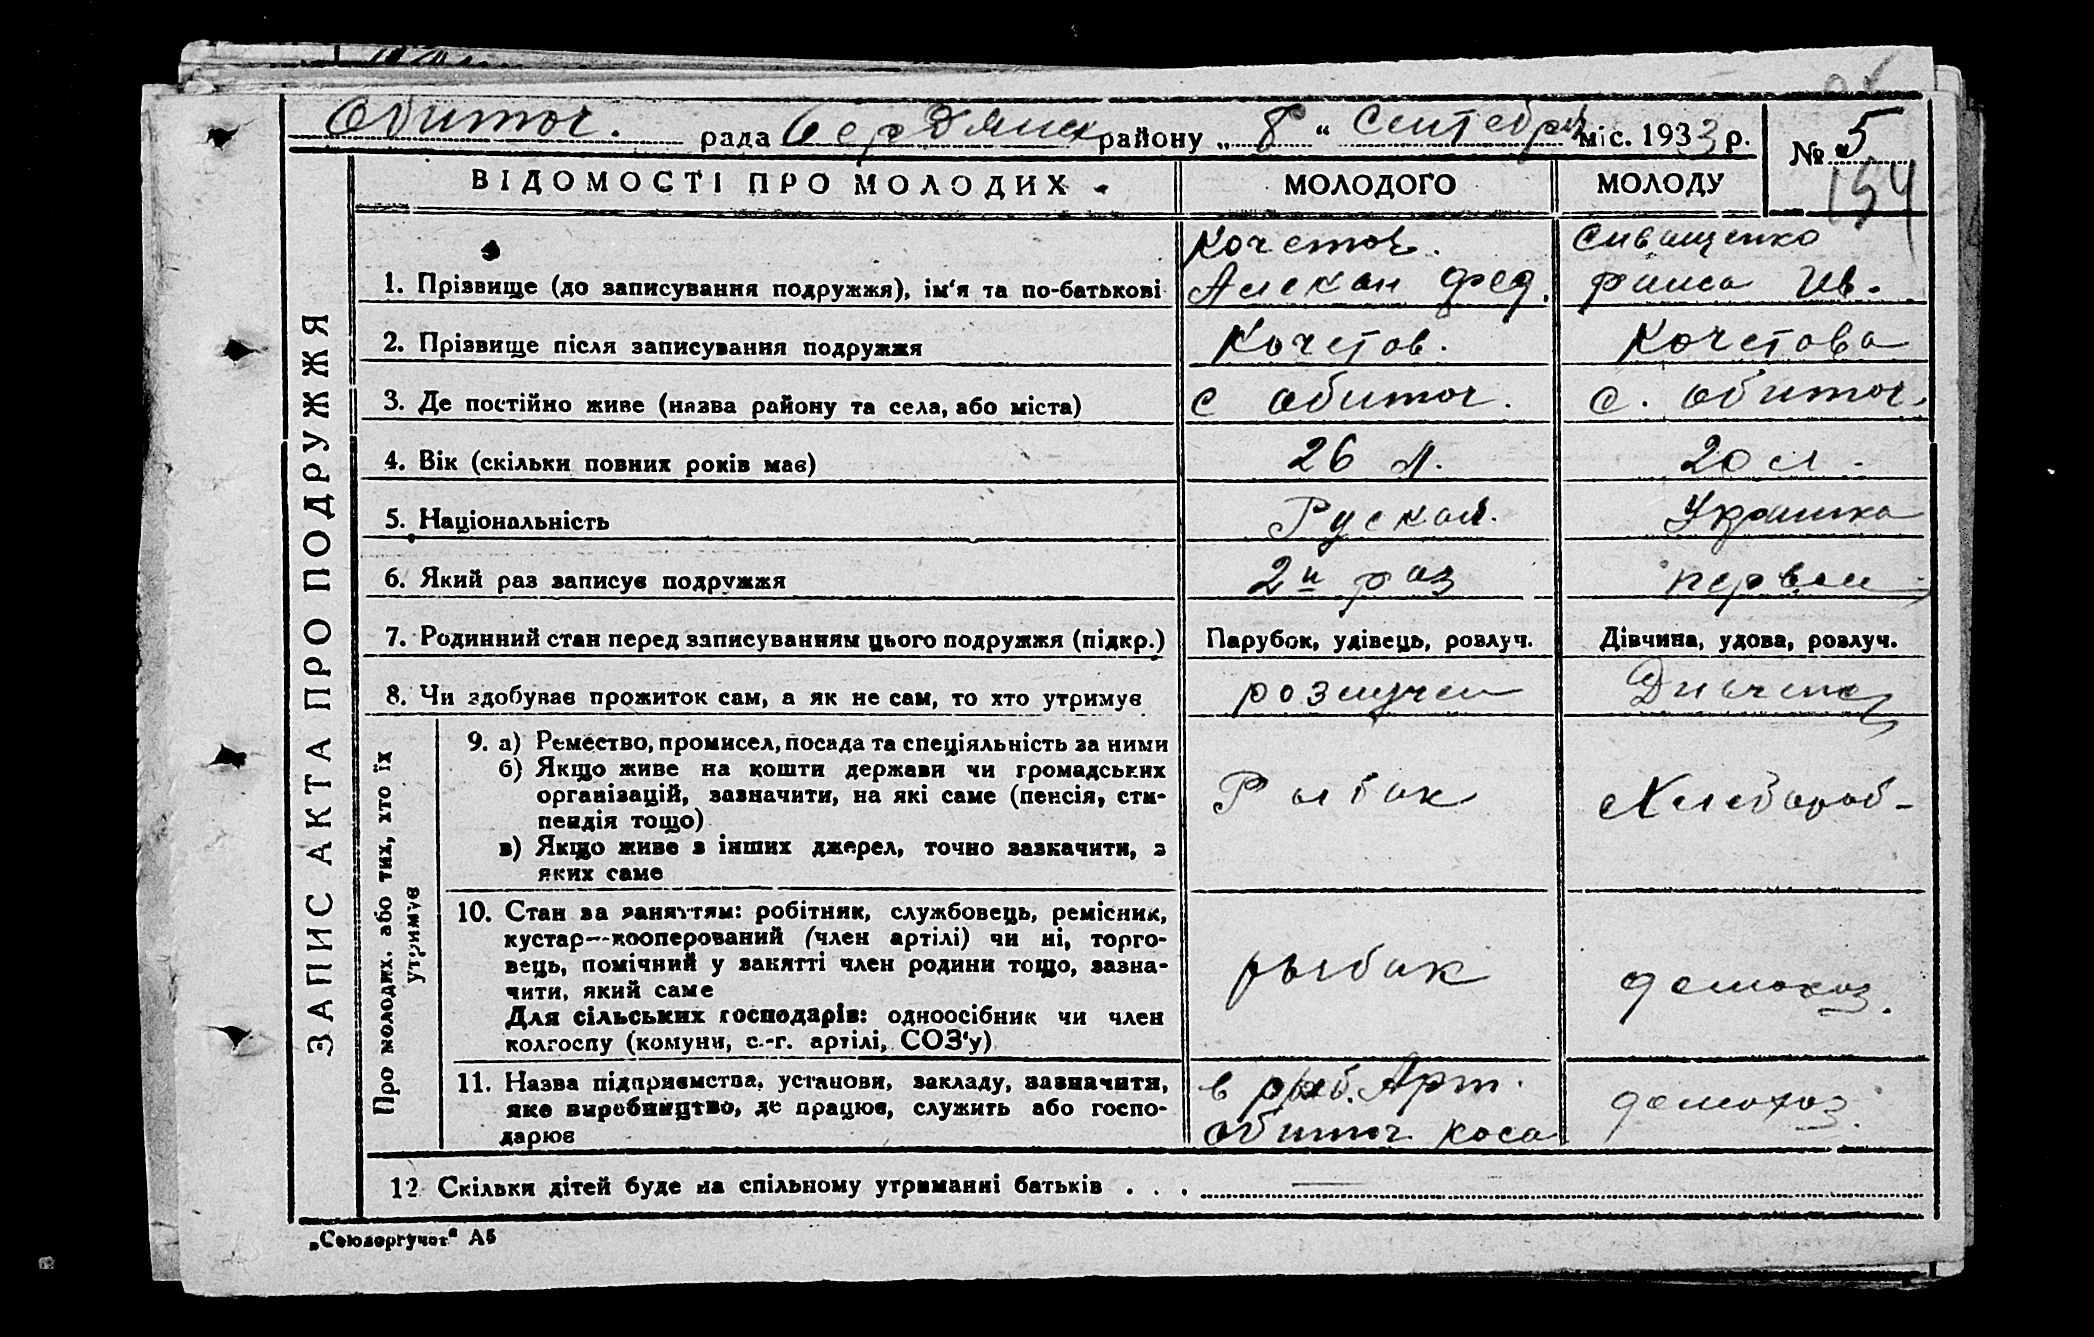 Обиточ. рада Бердянск району „ 8 " Сентебря міс. 1933 р. № 5
154
ВІДОМОСТІ ПРО МОЛОДИХ МОЛОДОГО МОЛОДУ
Кочетов. Сиващенко
1. Прізвище (до записування подружжя), ім'я та по-батькові Алексан Фед. Раиса Ив.
2. Прізвище після записування подружжя Кочетов. Кочетова
3. Де постійно живе (назва району та села, або міста) с Обиточ. с. Обиточ.
4. Вік (скільки повних років має) 26 л. 20 л.
5. Національність Руской. Украинка
6. Який раз записує подружжя 2й раз первый
7. Родинний стан перед записуванням цього подружжя (підкр.) Парубок, удівець, розлуч. Дівчина, удова, розлуч.
8. Чи здобуває прожиток сам, а як не сам, то хто утримує розлучен Дивчина
9. а) Ремество, промисел, посада та спеціяльність за ними
б) Якщо живе на кошти держави чи громадських
організацій, зазначити, на які саме (пенсія, сти-
пендія тощо) Рыбак Хлебороб
в) Якщо живе з інших джерел, точно зазначити, з
яких саме
10. Стан за заняттям: робітник, службовець, ремісник,
кустар—кооперований (член артілі) чи ні, торго-
вець, помічний у занятті член родини тощо, зазна-
чити, який саме рыбак домохоз.
Для сільських господарів: одноосібник чи член
колгоспу (комуни, с.-г. артілі, СОЗ'у)
11. Назва підприємства, установи, закладу, зазначити, в рыб. Арт.
яке виробництво, де працює, служить або госпо- домохоз.
дарює Обиточ коса
12 Скільки дітей буде на спільному утриманні батьків . . . —
„Союзоргучот" А5
ЗАПИС АКТА ПРО ПОДРУЖЖЯ
Про молодих, або тих, хто їх
утримує